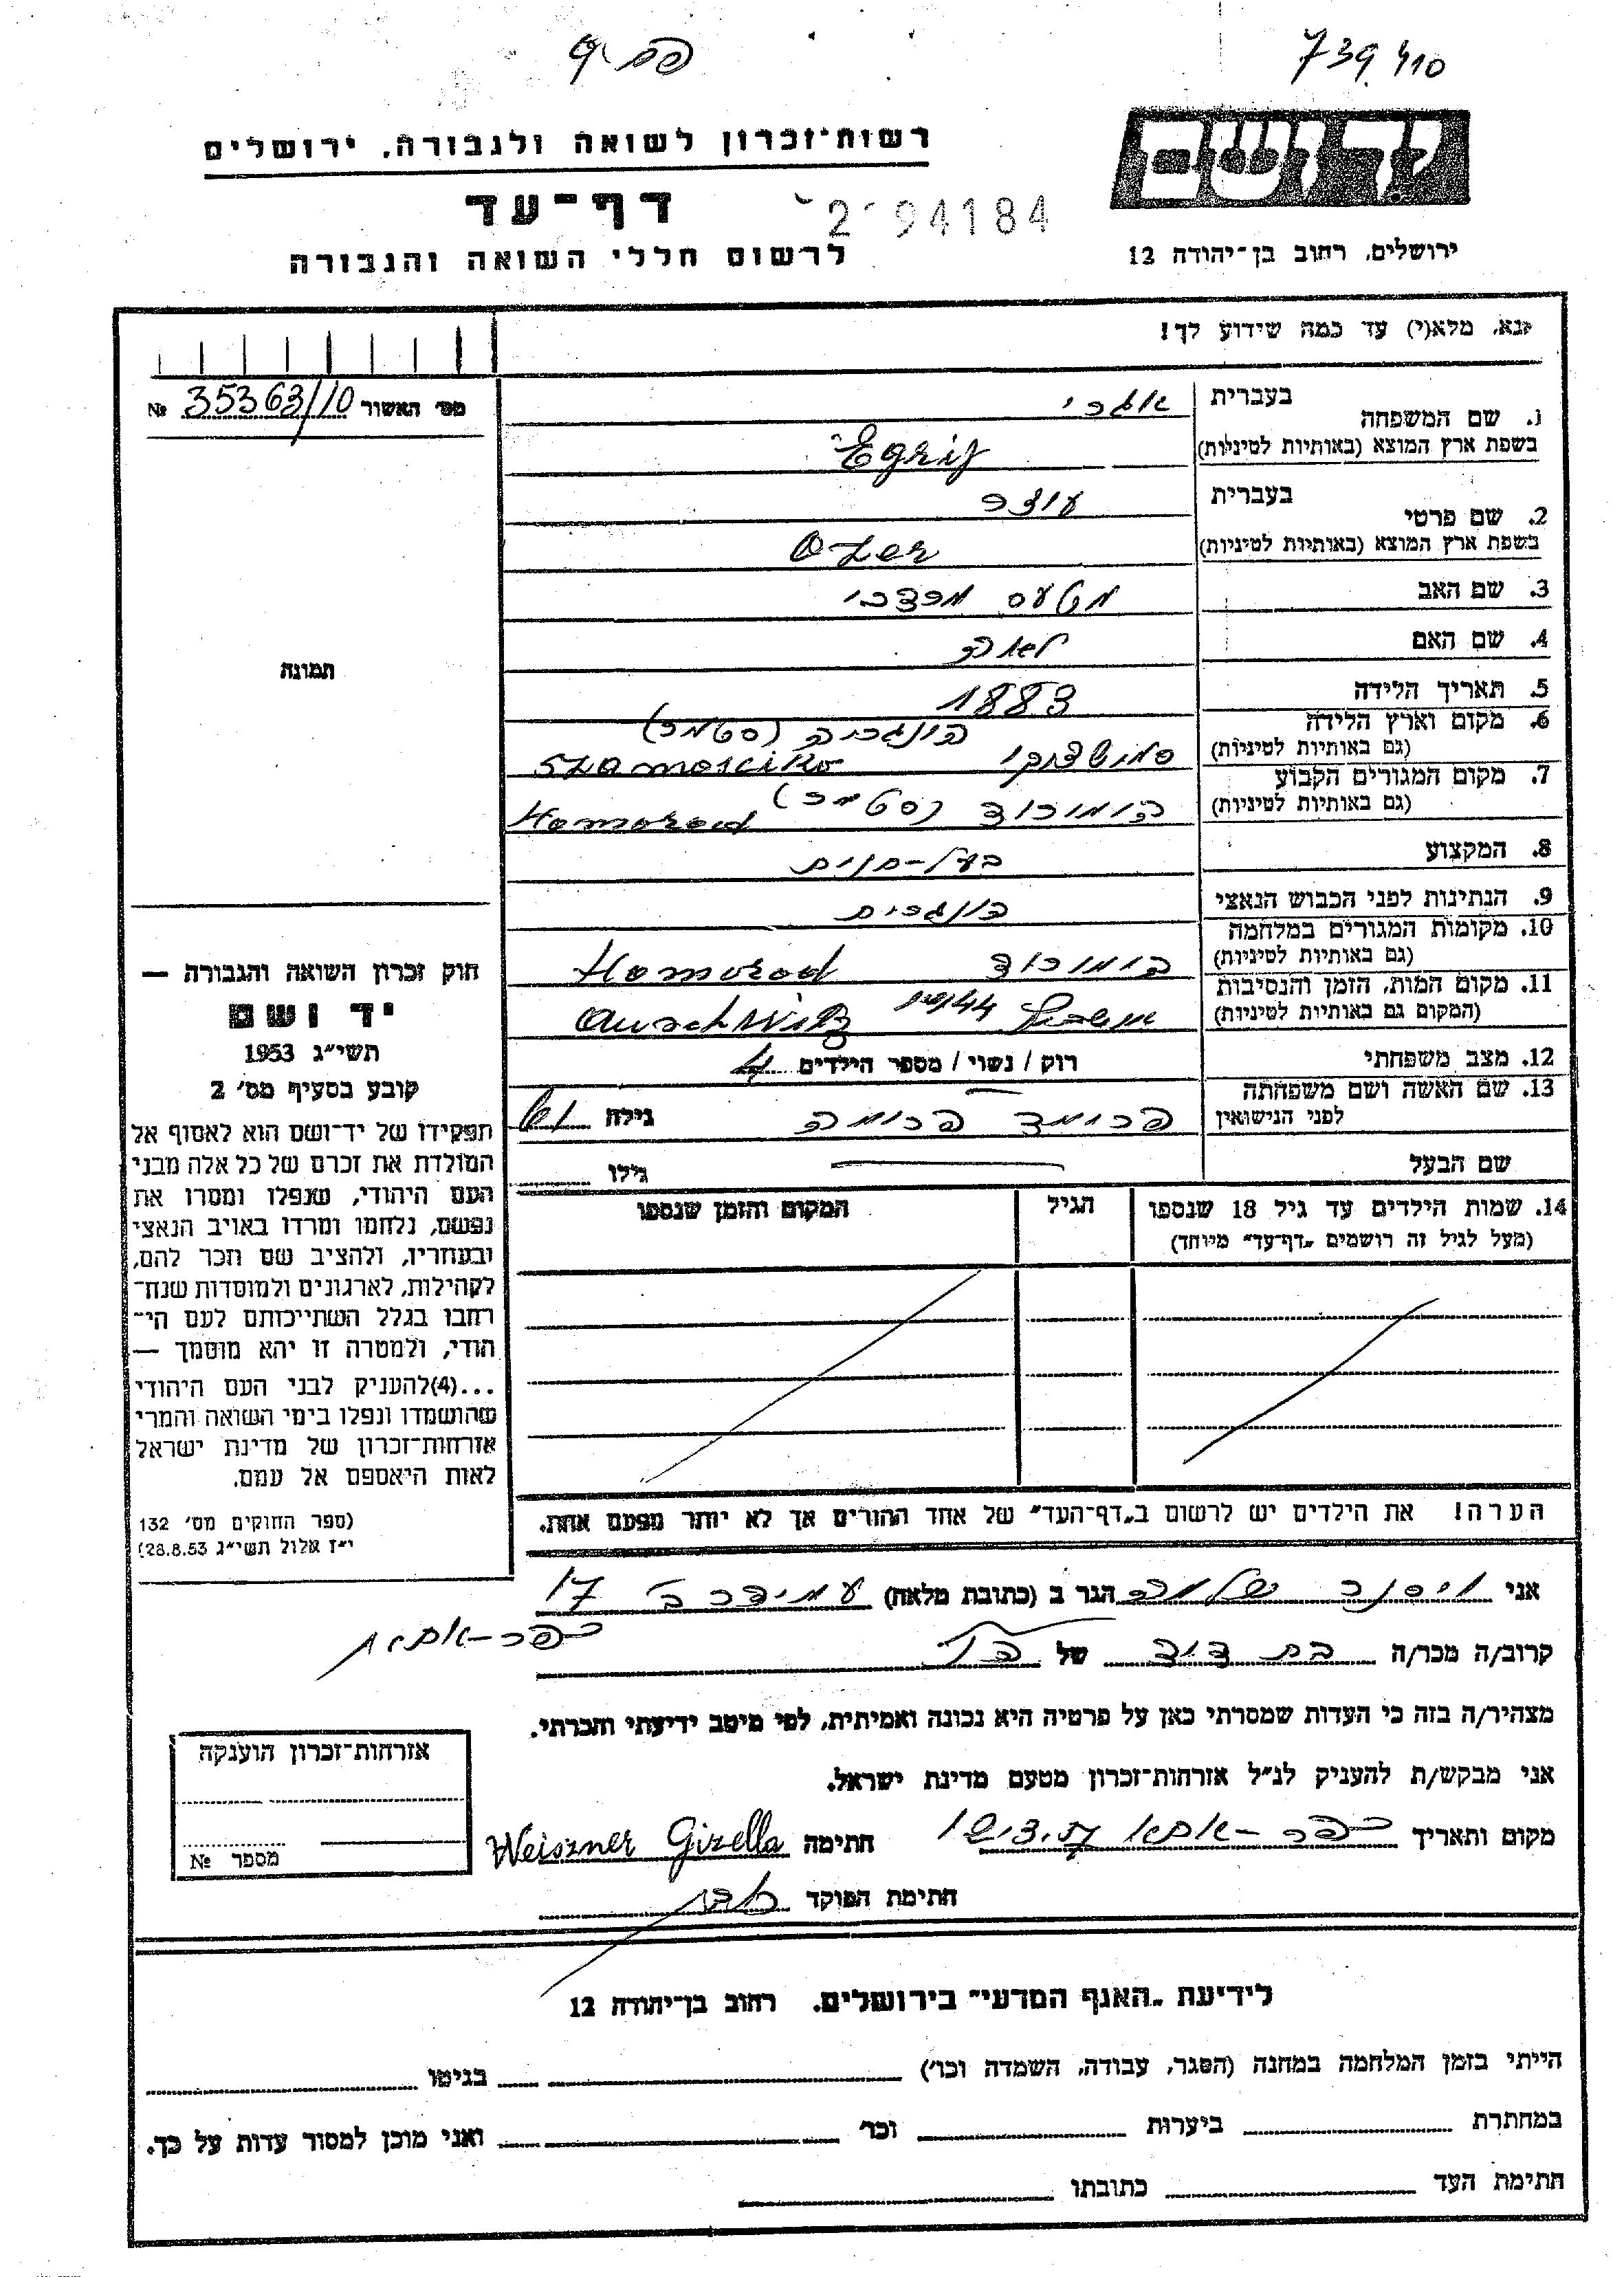 739 410
רשות־זכרון לשואה ולגבורה, ירושלים
דף־עד
294184
לרשום חללי השואה והגבורה
יד ושם
ירושלים, רחוב בן־יהודה 12
נא, מלא(י) עד כמה שידוע לך!
מס׳ האשור 35363/10 №
1. שם המשפחה
בעברית אגרי
בשפת ארץ המוצא (באותיות לטיניות) Egrij
2. שם פרטי
בעברית עוזר
בשפת ארץ המוצא (באותיות לטיניות) Ozer
3. שם האב
4. שם האם לאה
5. תאריך הלידה 1883
6. מקום וארץ הלידה הונגריה (סטמר)
(גם באותיות לטיניות)
7. מקום המגורים הקבוע הומורוד (סטמר) Homorod
(גם באותיות לטיניות)
8. המקצוע בעל-חנות
9. הנתינות לפני הכבוש הנאצי הונגרית
10. מקומות המגורים במלחמה הומורוד Homorod
(גם באותיות לטיניות)
11. מקום המות, הזמן והנסיבות 1944 Auschwitz
(המקום גם באותיות לטיניות)
12. מצב משפחתי רוק / נשוי / מספר הילדים 4
13. שם האשה ושם משפחתה
לפני הנישואין
גילה 61
שם הבעל גילו
14. שמות הילדים עד גיל 18 שנספו
(מעל לגיל זה רושמים „דף־עד״ מיוחד)
הגיל
המקום והזמן שנספו
הערה! את הילדים יש לרשום ב„דף־העד״ של אחד ההורים אך לא יותר מפעם אחת.
תמונה
חוק זכרון השואה והגבורה —
יד ושם
תשי״ג 1953
קובע בסעיף מס׳ 2
תפקידו של יד־ושם הוא לאסוף אל
המולדת את זכרם של כל אלה מבני
העם היהודי, שנפלו ומסרו את
נפשם, נלחמו ומרדו באויב הנאצי
ובעוזריו, ולהציב שם וזכר להם,
לקהילות, לארגונים ולמוסדות שנח־
רחבו בגלל השתייכותם לעם הי־
הודי, ולמטרה זו יהא מוסמך —
...(4)להעניק לבני העם היהודי
שהושמדו ונפלו בימי השואה והמרי
אזרחות־זכרון של מדינת ישראל
לאות היאספם אל עמם.
(ספר החוקים מס׳ 132
י״ז אלול תשי״ג 28.8.53)
אני הגר ב (כתובת מלאה) עמידר ב׳ 17
כפר-אתא
קרוב/ה מכר/ה בת דוד של הנ״ל
מצהיר/ה בזה כי העדות שמסרתי כאן על פרטיה היא נכונה ואמיתית, לפי מיטב ידיעתי והכרתי.
אני מבקש/ת להעניק לנ״ל אזרחות־זכרון מטעם מדינת ישראל.
מקום ותאריך כפר-אתא חתימה Weiszner Gizella
חתימת הפוקד
אזרחות־זכרון הוענקה
מספר №
לידיעת „האגף המדעי״ בירושלים, רחוב בן־יהודה 12
הייתי בזמן המלחמה במחנה (הסגר, עבודה, השמדה וכו׳) בגיטו
במחתרת ביערות וכו׳ ואני מוכן למסור עדות על כך.
חתימת העד כתובתו